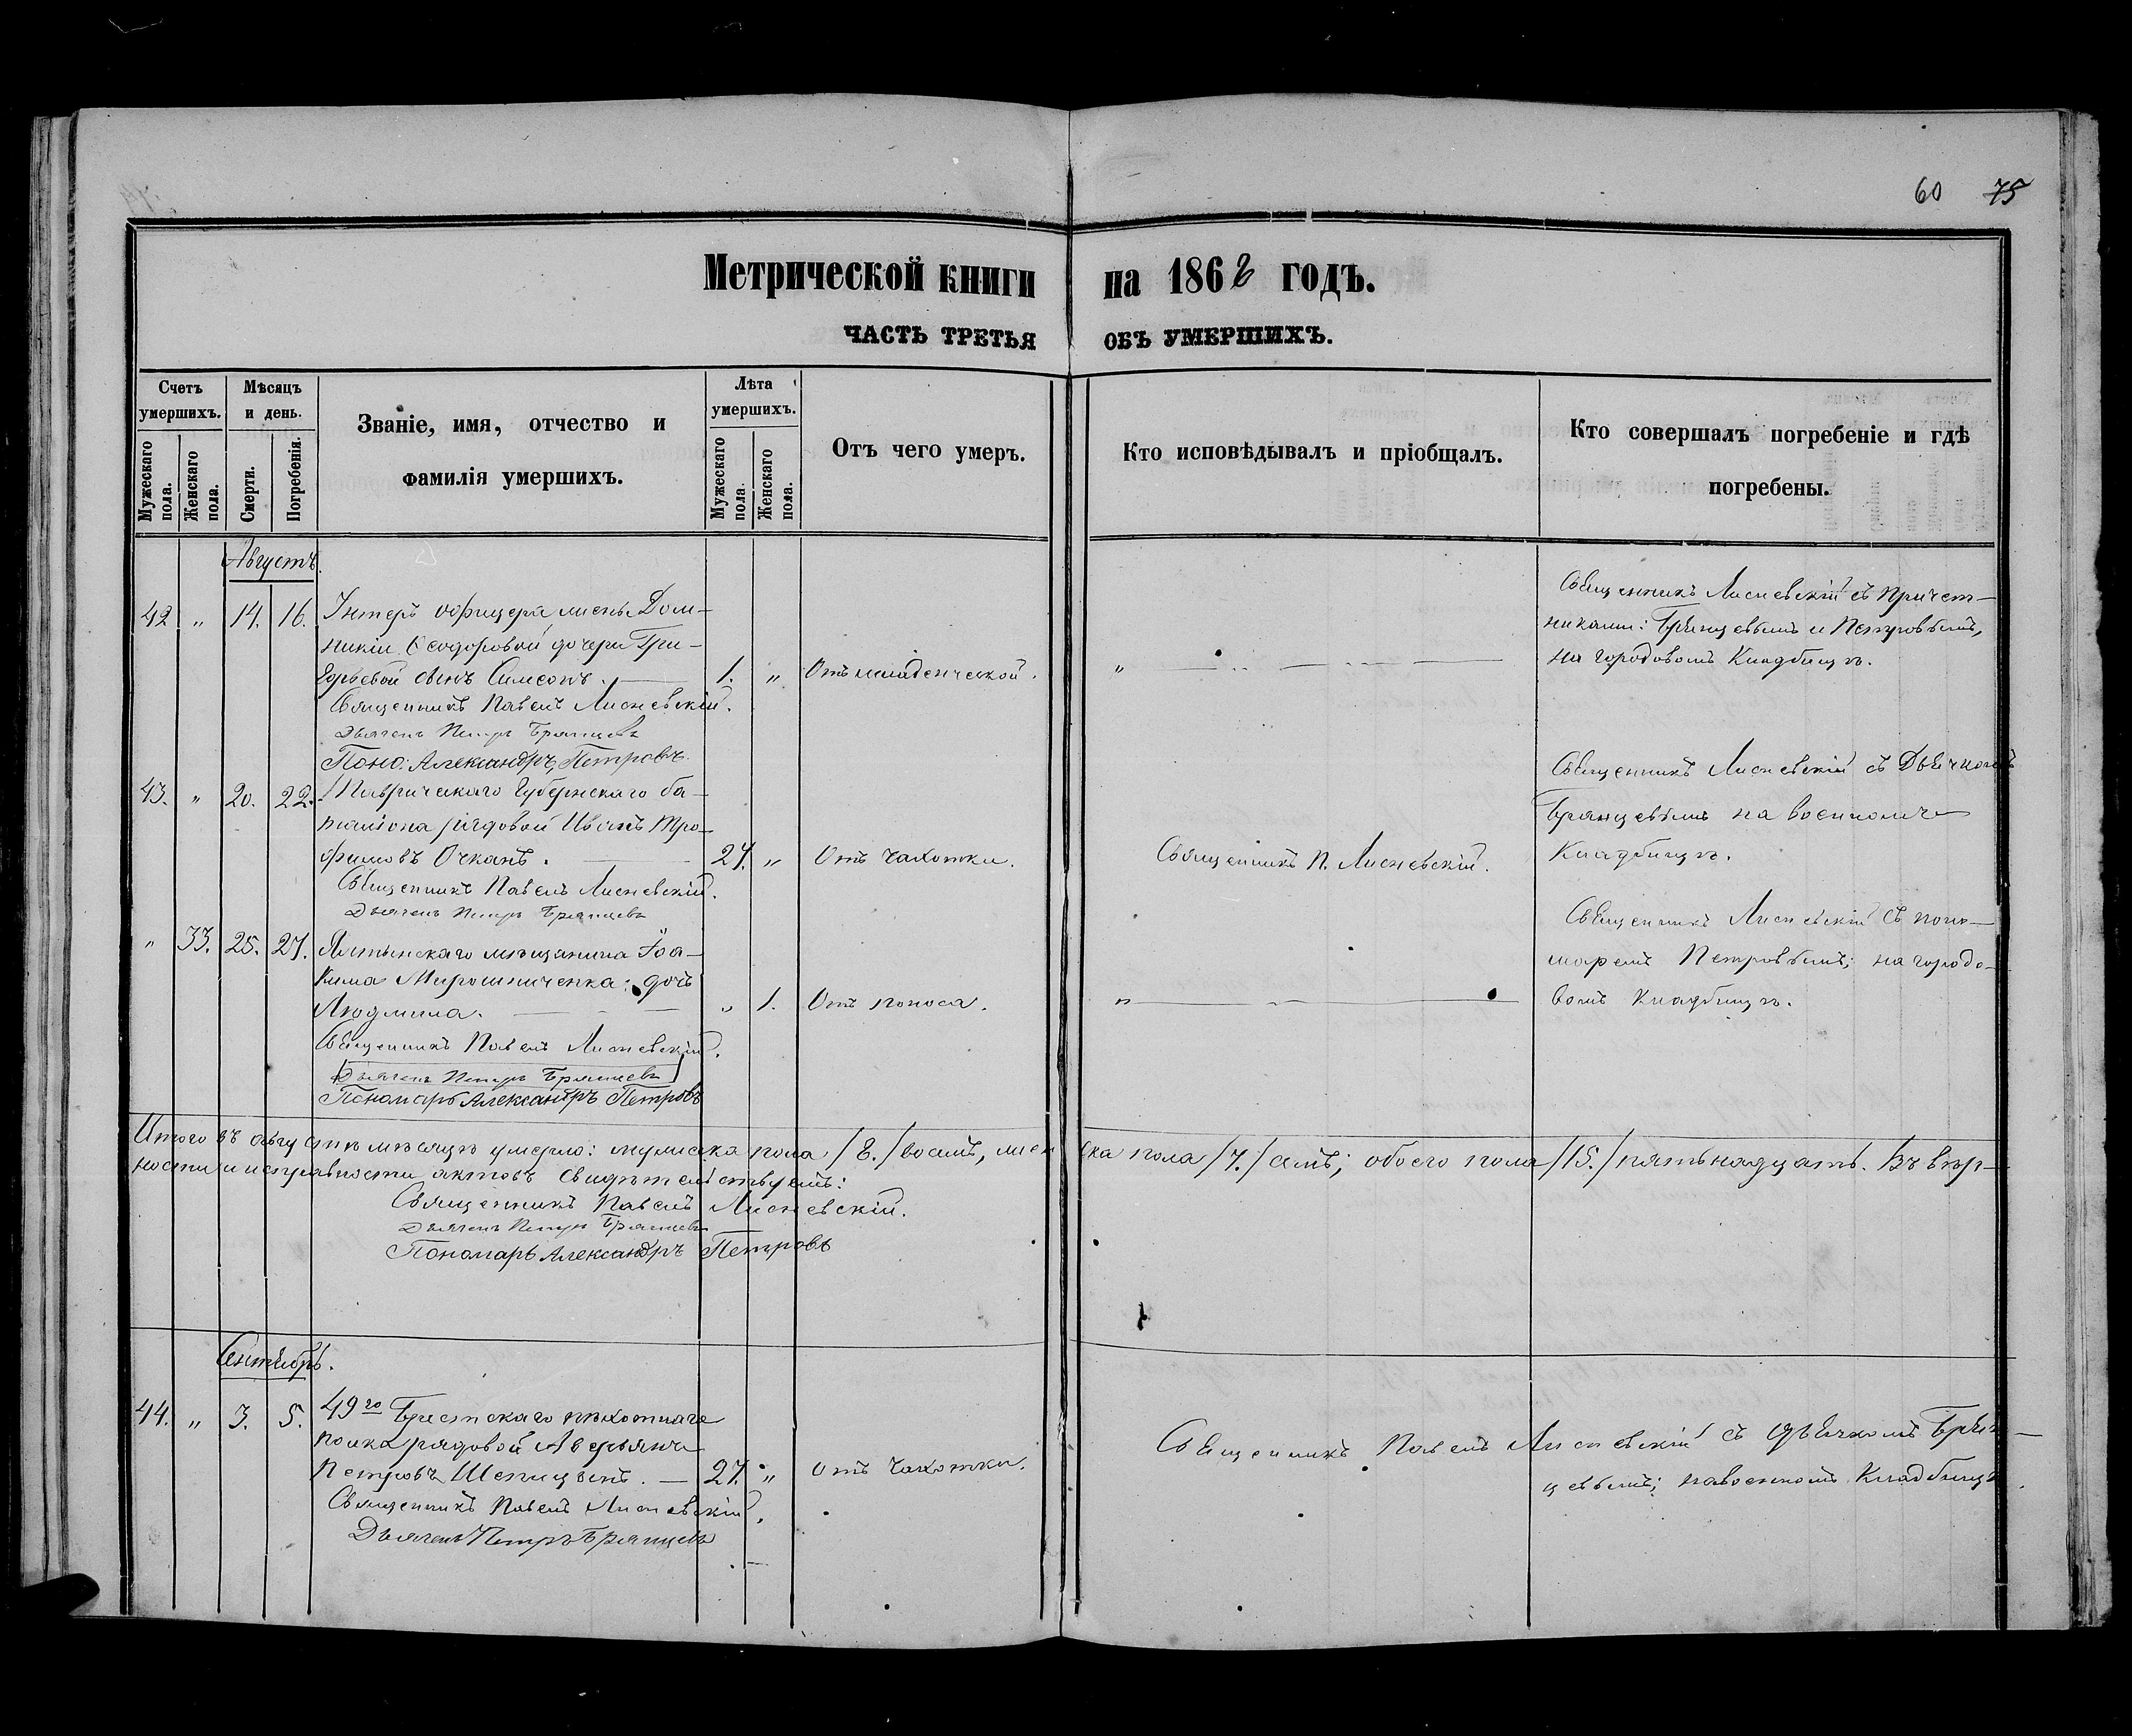 60 75
Метрической книги на 1868 годъ.
ЧАСТЬ ТРЕТЬЯ ОБЪ УМЕРШИХЪ.
Счетъ умершихъ.
Мужескаго пола.
Женскаго пола.
Мѣсяцъ и день.
Смерти.
Погребенія.
Званіе, имя, отчество и
фамилія умершихъ.
Лѣта умершихъ.
Мужескаго пола.
Женскаго пола.
Отъ чего умеръ.
Кто исповѣдывалъ и пріобщалъ.
Кто совершалъ погребеніе и гдѣ
погребены.
Августъ.
42 " 14. 16. Унтеръ офицера жены Дом-
никіи Ѳеодоровой дочери Гри-
горьевой сынъ Симеонъ. 1. " Отъ младенческой. "
Священникъ Павелъ Лисневскій.
Дьячекъ Петръ Брянцевъ
Поно: Александръ Петровъ
Священникъ Лисневскій съ причет-
никами: Брянцевымъ и Петровымъ,
на городовомъ кладбищѣ.
43. " 20. 22. Таврическаго Губернскаго ба-
таліона рядовой Иванъ Тро-
фимовъ 27. " Отъ чахотки. Священникъ П. Лисневскій.
Священникъ Павелъ Лисневскій.
Дьячекъ Петръ Брянцевъ
Священникъ Лисневскій съ Дьячкомъ
Брянцевымъ на военномъ
кладбищѣ.
" 33. 25. 27. Ялтынскаго мѣщанина Іоа-
кима Мирошниченка: дочь
Людмила. " 1. Отъ поноса. "
Священникъ Павелъ Лисневскій.
Дьячекъ Петръ Брянцевъ
Пономарь Александръ Петровъ
Священникъ Лисневскій съ поно-
маремъ Петровымъ; на городо-
вомъ кладбищѣ.
Итого въ августѣ мѣсяцѣ умерло: мужеска пола /8./ восемь, женска пола /7./ семь; обоего пола /15./ пятьнадцать. Въ вѣр-
ности и исправности актовъ свидѣтельствуемъ:
Священникъ Павелъ Лисневскій.
Дьячекъ Петръ Брянцевъ
Пономарь Александръ Петровъ
Сентябрь.
44. " 3. 5. 49го Брестскаго пѣхотнаго
полка рядовой Аверьянъ
Петровъ 27. " Отъ чахотки.
Священникъ Павелъ Лисневскій.
Дьячекъ Петръ Брянцевъ
Священникъ Павелъ Лисневскій съ дьячкомъ Брян-
цевымъ; на военномъ кладбищѣ.